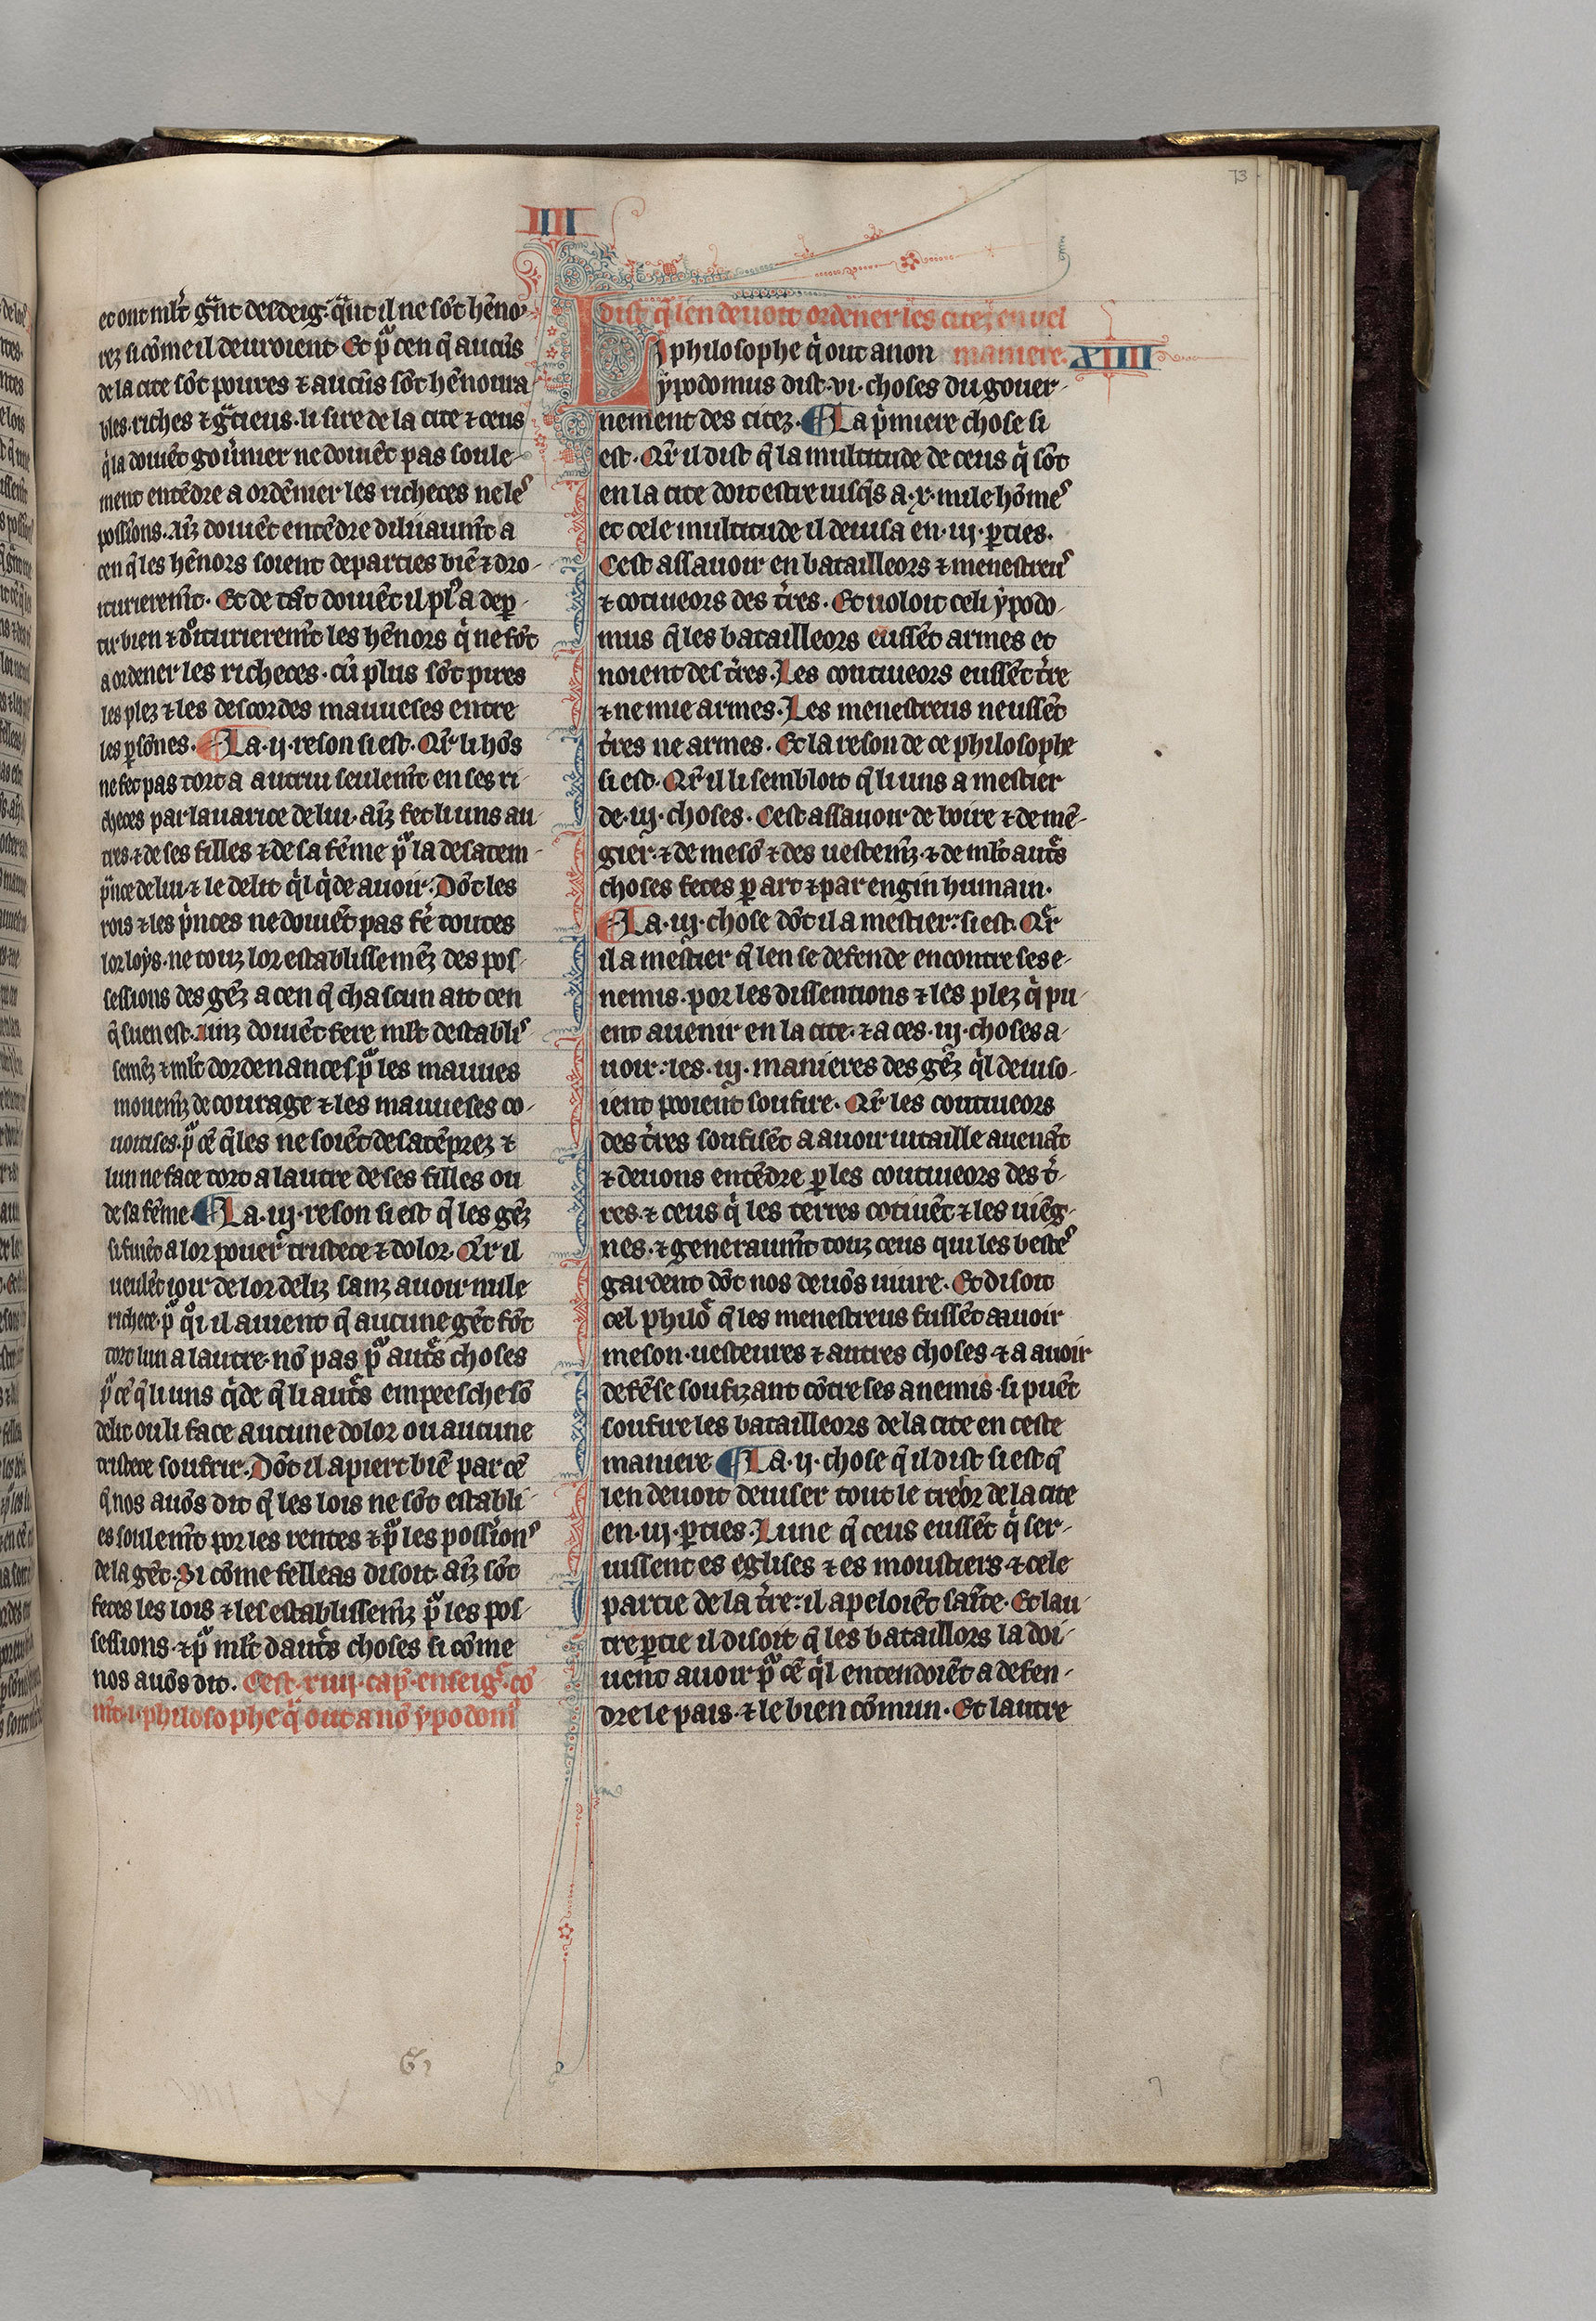 73
IIII
et ont ml̃t gͣnt desdeig. qͣnt il ne sõt hẽno-
rez si cõme il deuroient Et pͣ cen q̃ aucũs
de la cite sõt poures ⁊ aucũs sõt hẽnoura
bles. riches ⁊ gͣcieus. li sire de la cite ⁊ ceus
qͥ la doiuẽt gouũner ne doiuẽt pas soule-
ment entẽdre a ordẽner les richeces ne leˢ
possions. Aīz doiuẽt entẽdre diluaumt̃ a
cen q̃ les hẽnors soient departies biẽ ⁊ dro-
iturieremt̃. Et de tãt doiuẽt il plˢ a dep̲-
tir bien ⁊ dͦiturieremt̃ les hẽnors qͥ ne fõt
a ordener les richeces. cũ plus sõt pires
les plez ⁊ les descordes mauueses entre
les p̲sõnes. La .ij. reson si est. Qr̃ li hõs
ne fet pas tort a autrui seulemt̃ en ses ri
checes par lauarice de lui. aīz fet li uns au
tres ⁊ de ses filles ⁊ de sa fẽme pͣ la desatem-
pͣnce de lui. ⁊ le delit qͥl qͥde auoir. Dõt les
rois ⁊ les pͥnces ne doiuẽt pas fẽ toutes
lor loys. ne touz lor establissemẽz des pos-
sessions des gẽz a cen q̃ chascun ait cen
q̃ suen est. Ainz doiuẽt fere ml̃t destabliˢ
semẽz ⁊ ml̃t dordenances pͣ les mauues
mouemẽz de courage ⁊ les mauueses co-
uoitises. pͣ cẽ q̃ les ne soiẽt desatẽprez ⁊
lun ne face tort a lautre de ses filles ou
de sa fẽme La .iij. reson si est q̃ les gẽz
si fuiẽt a lor pouer tristece ⁊ dolor. Qr̃ il
ueulẽt ioir de lor deliz sanz auoir nule
richece. pͣ qͦi il auient q̃ aucune gẽt fõt
tort lun a lautre. nõ pas pͣ autͤs choses
pͣ cẽ q̃ li uns qͥde q̃ li autͤs empeesche sõ
delit ou li face aucune dolor ou aucune
tristece soufrir. Dõt il apiert biẽ par cẽ
q̃ nos auõs dit q̃ les lois ne sõt establi-
es soulemt̃ por les rentes ⁊ pͣ les possionˢ
de la gẽt. Si cõme felleas disoit. aīz sõt
fetes les lois ⁊ les establissemẽz pͣ les pos-
sessions. ⁊ pͣ ml̃t dautͤs choses si cõme
nos auõs dit. Cest .xiiij. cap̃. enseig̃. cõ
mt̃ .i. philosophe qͥ out a nõ ypodomˢ
dist q̃ len deuoit ordener les citez en uel
maniere. XIIII
I philosophe qͥ out anon
ypodomus dist .vi. choses du gouer-
nement des citez. La pͥmiere chose si
est. Qr̃ il dist q̃ la multitude de ceus qͥ sõt
en la cite doit estre iusq̃s a .x. mile hõmeˢ
et cele multitude il deuisa en .iij. p̲ties.
Cest assauoir en batailleors ⁊ menestreuˢ
⁊ cotiueors des tͥres. Et uoloit celi ypodo-
mus q̃ les batailleors eussẽt armes et
noient des tͥres. Les coutiueors eussẽt tͥre
⁊ ne mie armes. Les menestreus neussẽt
tͥres ne armes. Et la reson de ce philosophe
si est. Qr̃ il li sembloit q̃ li uns a mestier
de .iij. choses. Cest assauoir de boire ⁊ de mẽ-
gier. ⁊ de mesõ ⁊ des uestemẽz. ⁊ de ml̃t autͤs
choses fetes p̲ art ⁊ par engin humain.
La .iij. chose dõt il a mestier. si est. Qr̃
il a mestier q̃ len se defende encontre ses e-
nemis. por les dissentions ⁊ les plez qͥ pu-
ent auenir en la cite. ⁊ a ces .iij. choses a-
uoir. les .iij. manieres des gẽz qͥl deuiso-
ient poient soufire. Qr̃ les coutiueors
des tͥres soufisẽt a auoir uitaille auenãt
⁊ deuons entẽdre p̲ les coutiueors des tͥ-
res. ⁊ ceus qͥ les terres cotiuẽt ⁊ les uiẽg-
nes. ⁊ generaumt̃ touz ceus qui les besteˢ
gardent dõt nos deuõs uiure. Et disoit
cel philoͤ q̃ les menestreus fussẽt a auoir
meson. uesteures ⁊ autres choses ⁊ a auoir
defẽse soufizant cõtre ses anemis. si puẽt
soufire les batailleors de la cite en ceste
maniere La .ij. chose q̃ il dist si est q̃
len deuoit deuiser tout le treor de la cite
en .iij. p̲ties. Lune q̃ ceus eussẽt qͥ ser-
uissent es eglises ⁊ es moustiers ⁊ cele
partie de la tͥre. il apeloiẽt saĩte. Et lau-
tre p̲tie il disoit q̃ les bataillors la doi-
uent auoir pͣ cẽ qͥl entendoiẽt a defen-
dre le pais. ⁊ le bien cõmun. Et lautre